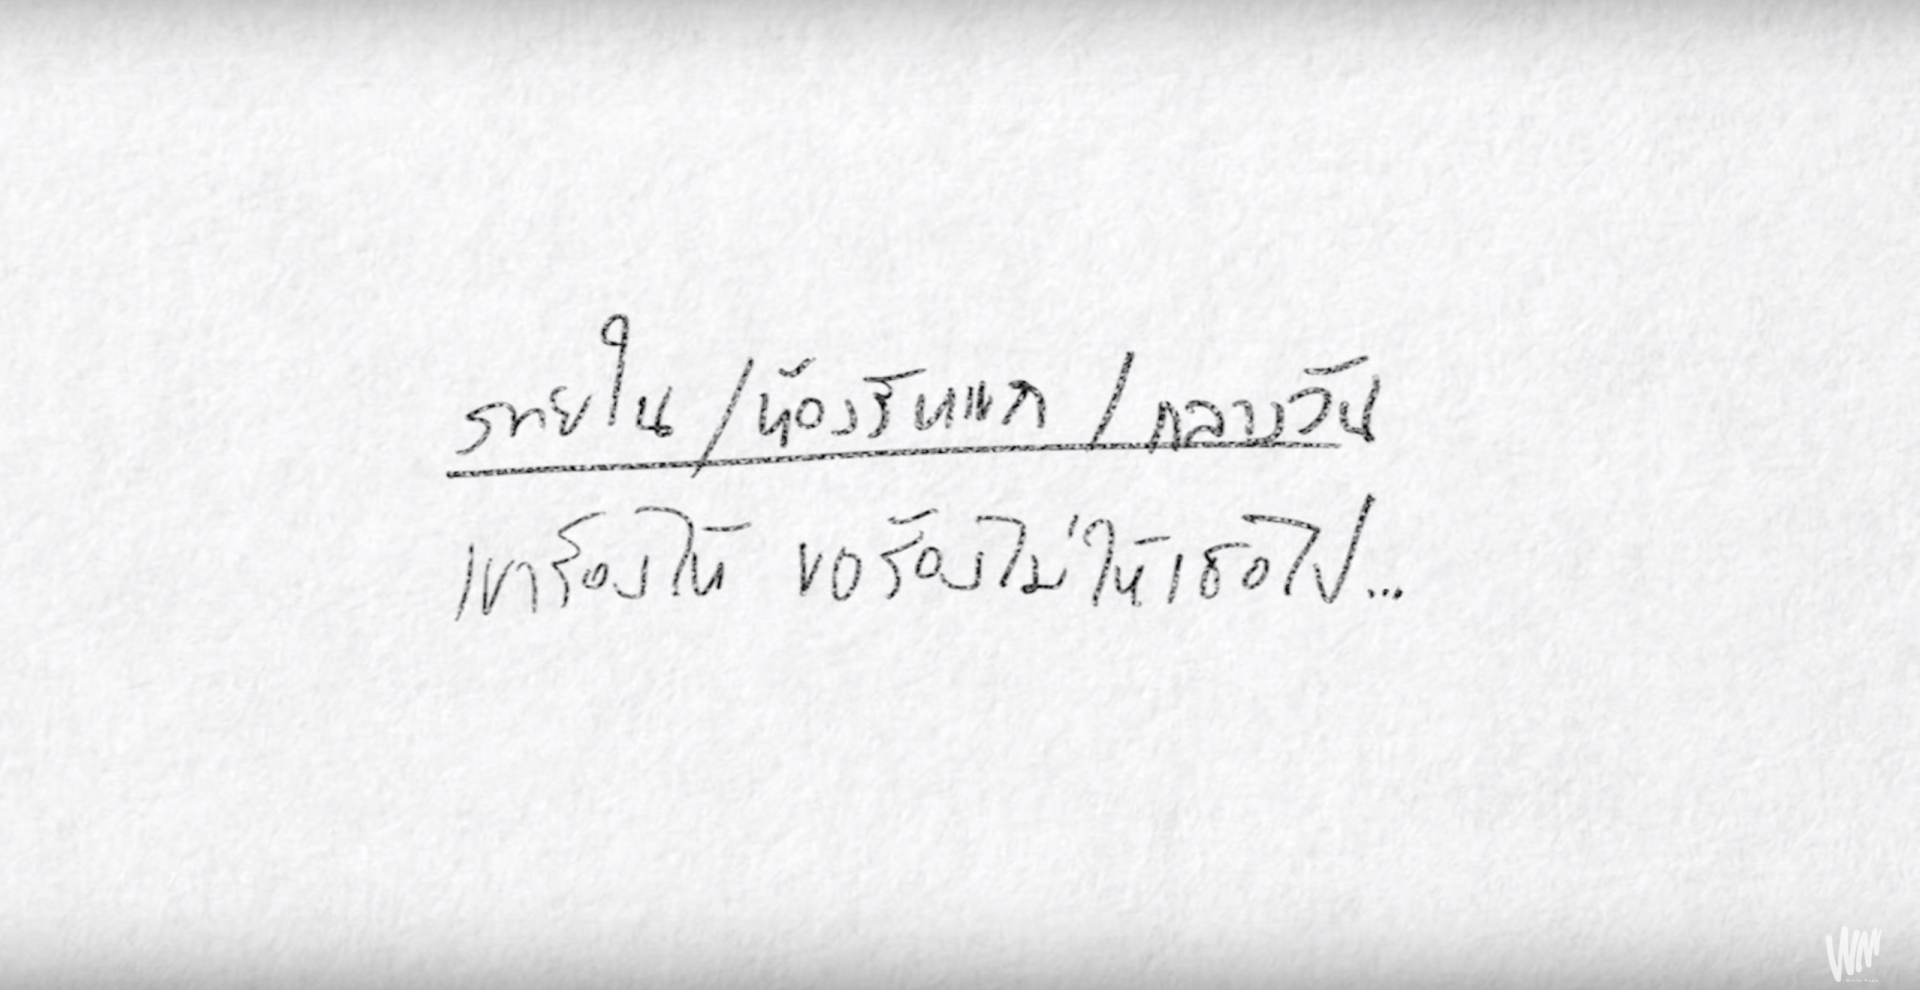 ภายใน / ห้องรับแขก / กลางวัน
เขาร้องไห้ ขอร้องไม่ให้เธอไป...
WM